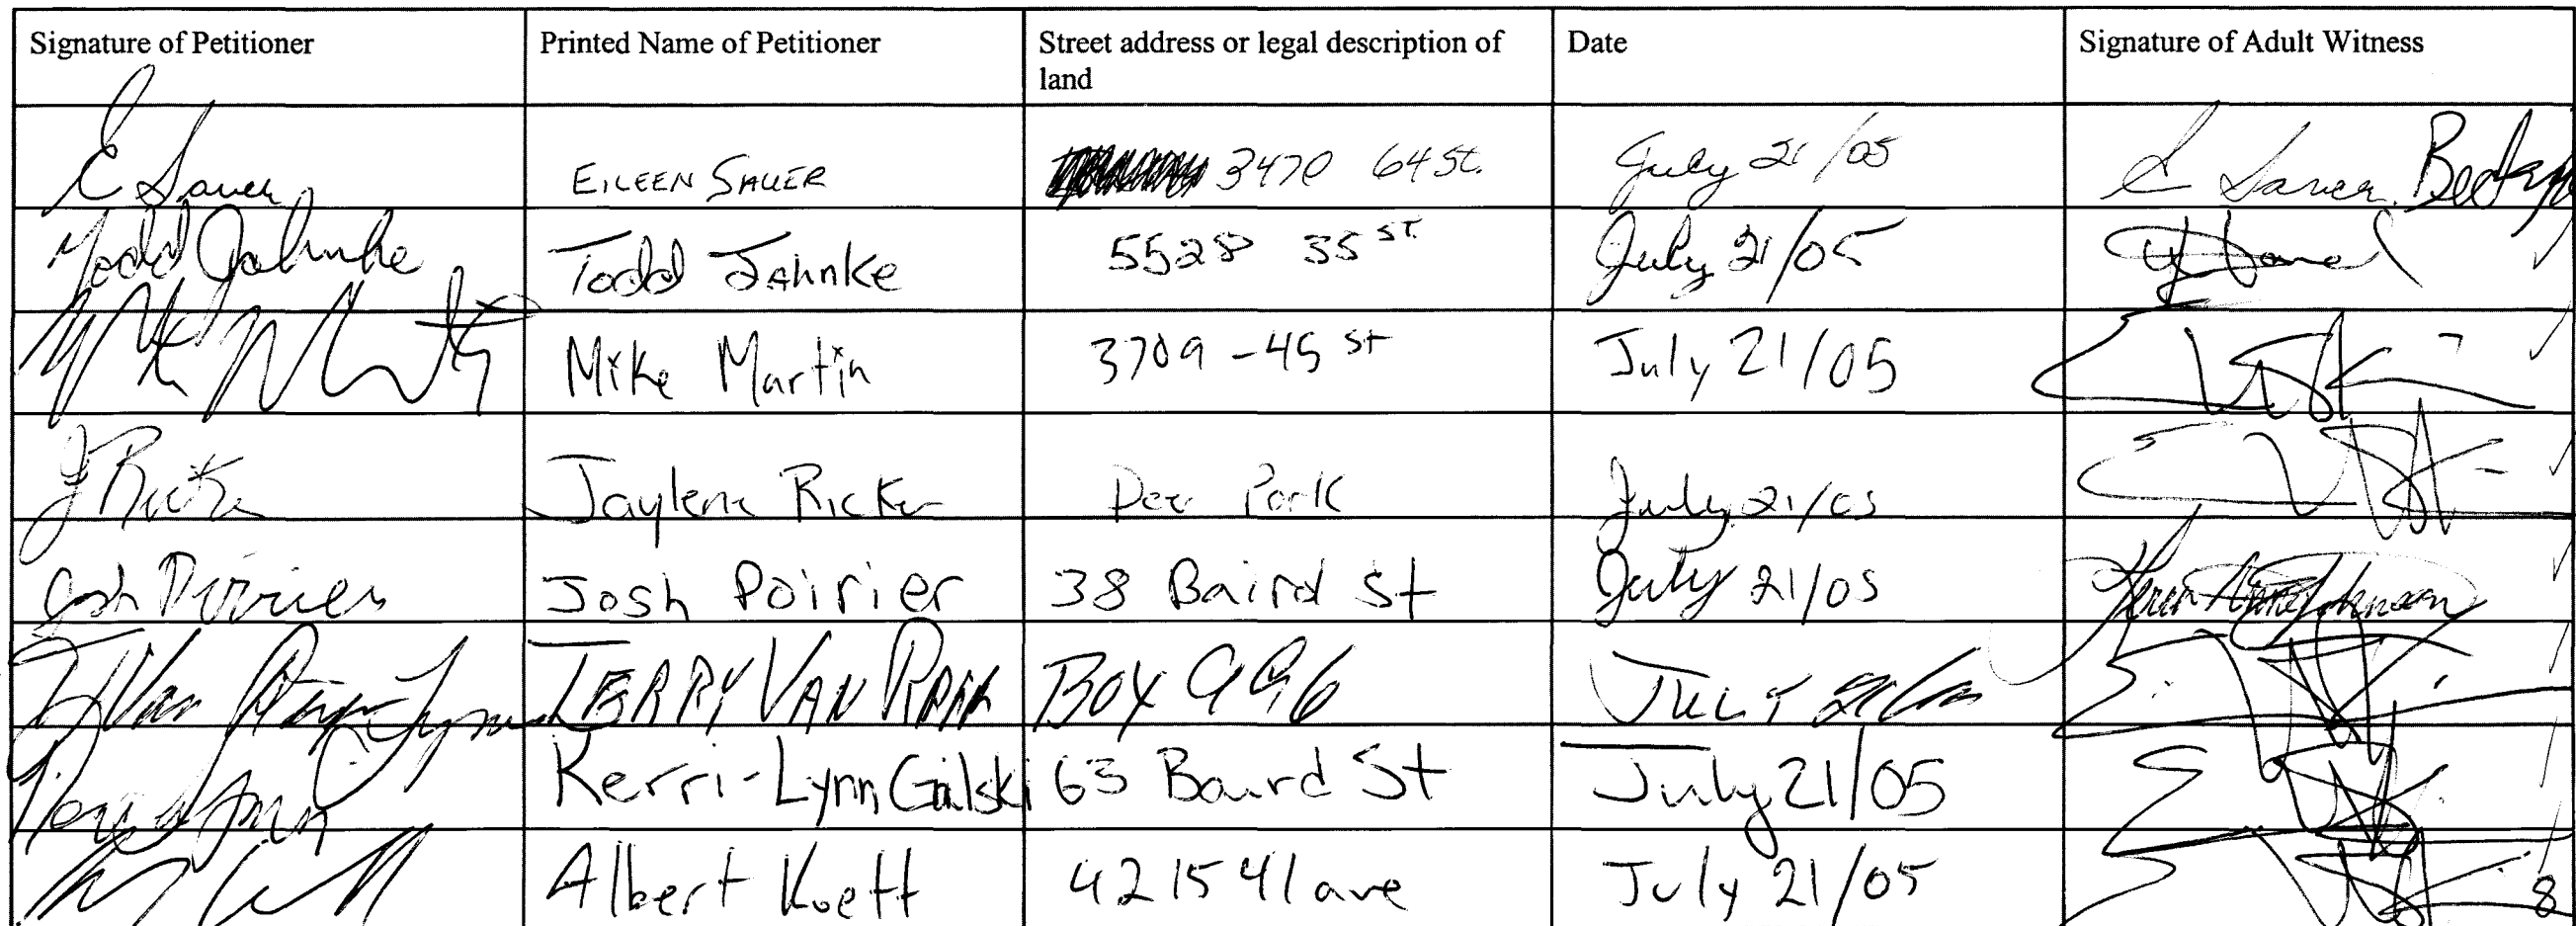 Signature of Petitioner Printed Name of Petitioner Street address or legal description of Date Signature of Adult Witness
land
E Sauer EILEEN SAUER 3470 64 St. July 21/05 E Sauer
Todd Jahnke Todd Jahnke 5528 35 ST. July 21/05
Mike Martin 3709 - 45 st July 21/05
J Ricker Jaylene Ricker Deer Park July 21/05
Josh Poirier Josh Poirier 38 Baird St July 21/05 Johnson
TERRY VAN BOX 996 JULY 21/05
Kerri-Lynn Gilski 63 Baird St July 21/05
Albert Koett 4215 41 ave July 21/05
8